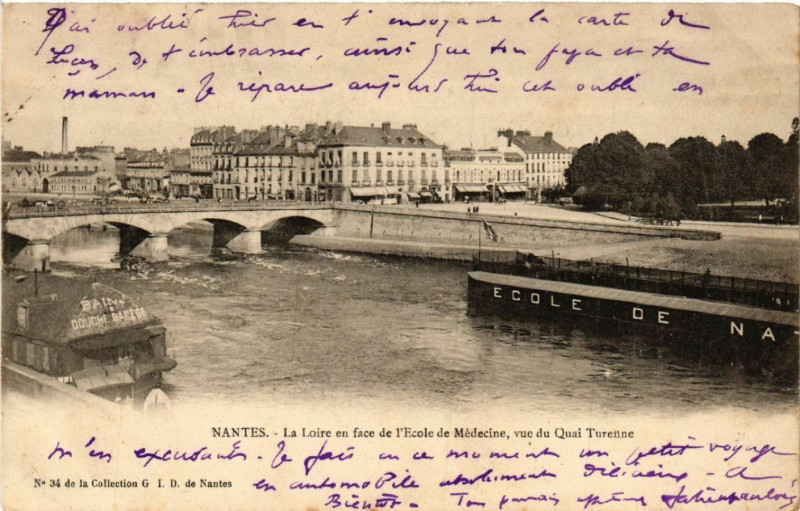 J'ai oublié hier en t'envoyant la carte de
de t'embrasser, ainsi que ton papa et ta
maman - Je répare aujourd'hui cet oubli en
BAINS
DOUCHE BARÈGE
ECOLE DE NA
NANTES. - La Loire en face de l'Ecole de Médecine, vue du Quai Turenne
m'en excusant. Je fais en ce moment un petit voyage
N° 34 de la Collection G I. D. de Nantes
en automobile absolument délicieux - A
Bientôt - Ton